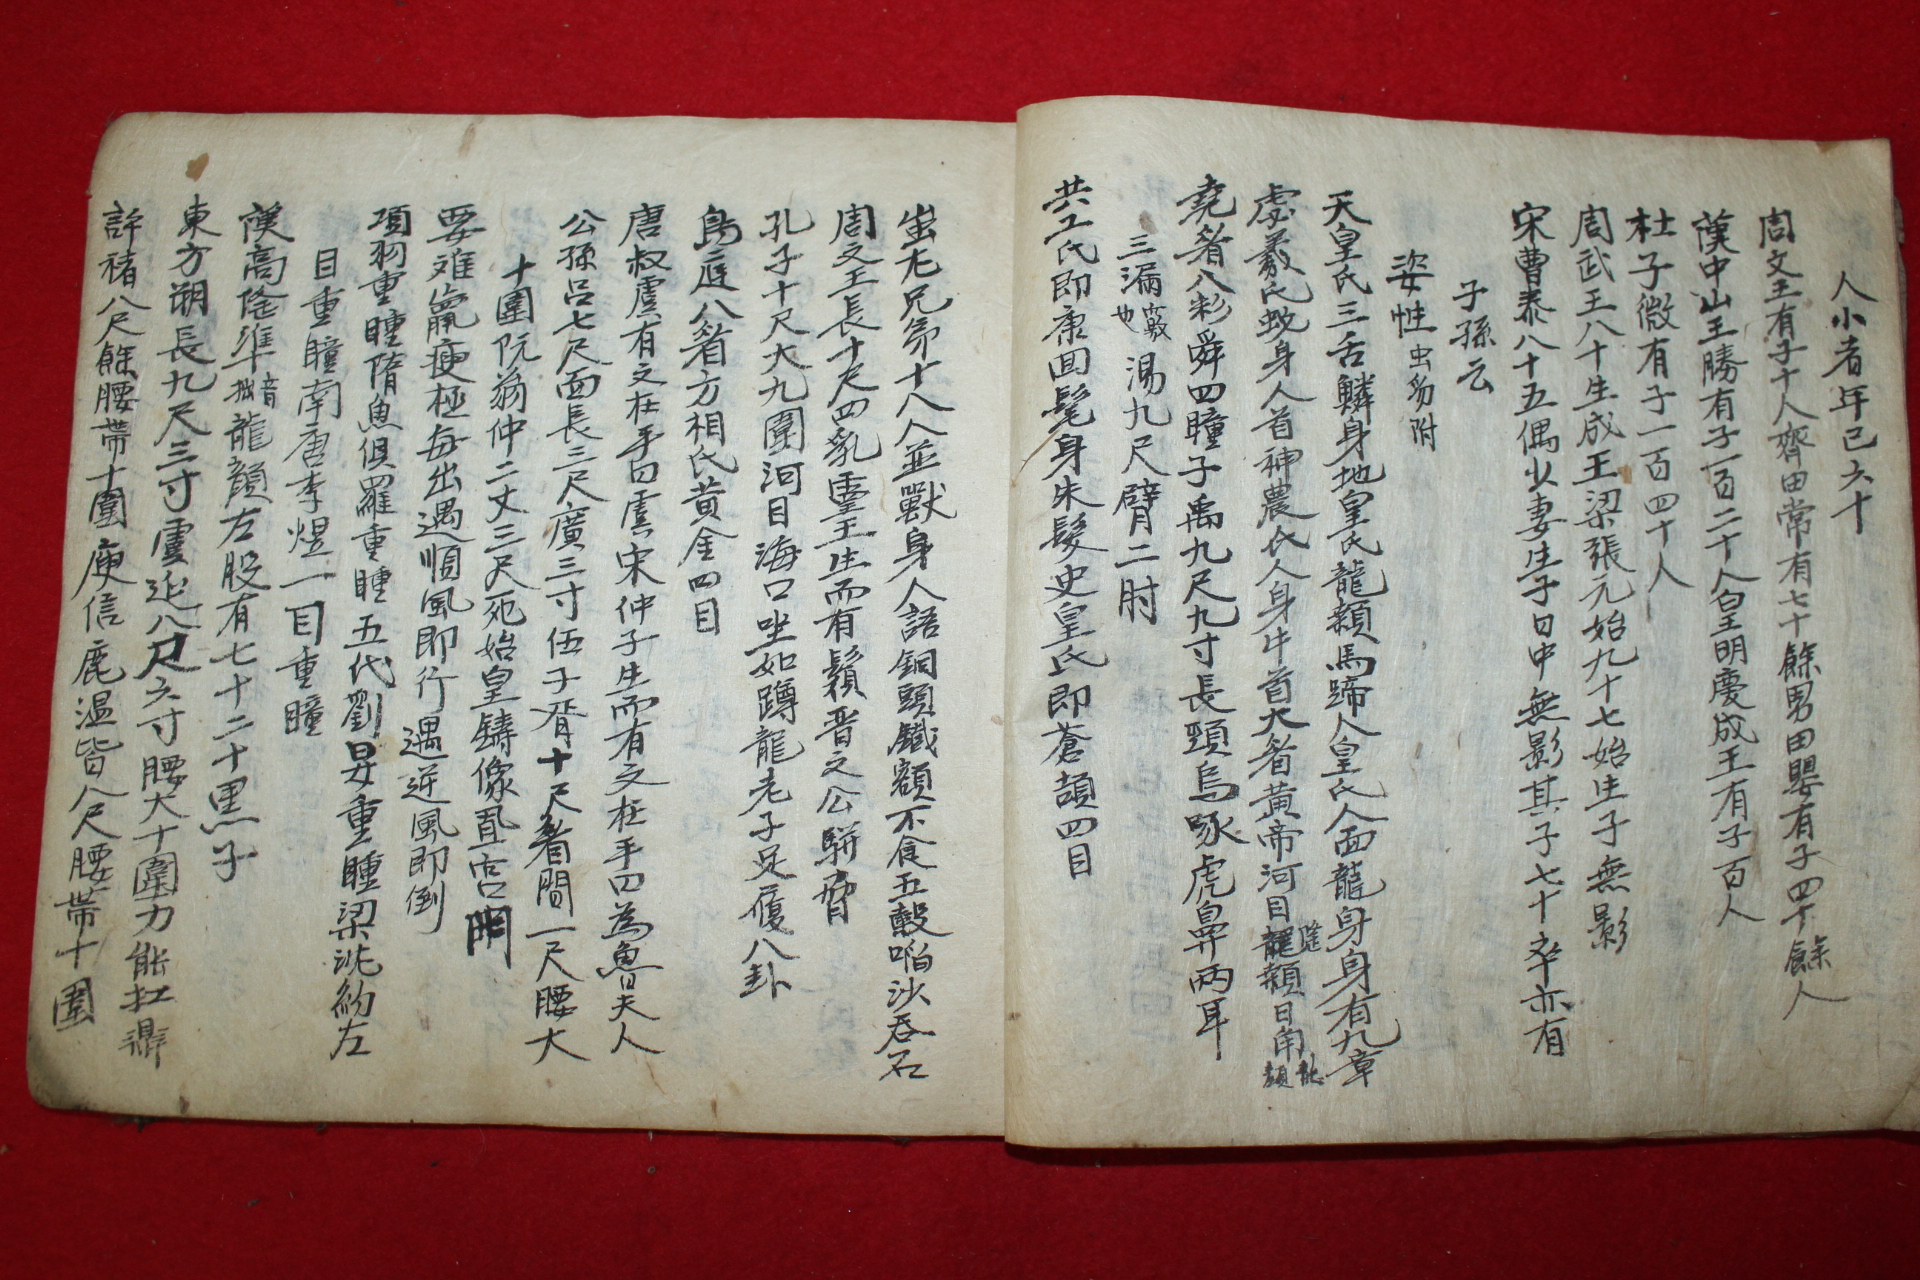 人小者年已六十
周文王有子十人齊田常有七十餘男田嬰有子四十餘人
漢中山王勝有子一百二十人皇明慶成王有子百人
杜子微有子一百四十人
周武王八十生成王梁張元始九十七始生子無影
宋曹泰八十五偶少妻生子日中無影其子七十卒亦有
子孫云
姿性虫豸附
天皇氏三舌鱗身地皇氏龍顙馬蹄人皇氏人面龍身身有九章
虙羲氏蛇身人首神農氏人身牛首大眉黃帝河目隆顙日角龍顔
堯眉八彩舜四瞳子禹九尺九寸長頸烏啄虎鼻兩耳
三漏竅也湯九尺臂二肘
共工氏即康回髦身朱髮史皇氏即蒼頡四目
蚩尤兄弟十八人並獸身人語銅頭鐵額不食五穀啗沙吞石
周文王長十尺四乳靈王生而有鬚晋文公騈脅
孔子十尺大九圍河目海口坐如蹲龍老子足履八卦
鳥庭八眉方相氏黃金四目
唐叔虞有文在手曰虞宋仲子生而有文在手曰為魯夫人
公孫呂七尺面長三尺廣三寸伍子胥十尺眉間一尺腰大
十圍阮翁仲二丈三尺死始皇鑄像置宮門
要难羸瘦極每出遇順風即行遇逆風即倒
項羽重瞳隋魚俱羅重瞳五代劉旻重瞳梁沈約左
目重瞳南唐李煜一目重瞳
漢高隆準音拙龍顔左股有七十二十黒子
東方朔長九尺三寸虞延八尺六寸腰大十圍力能扛鼎
許禇八尺餘腰帶十圍庾信鹿温皆八尺腰帶十圍